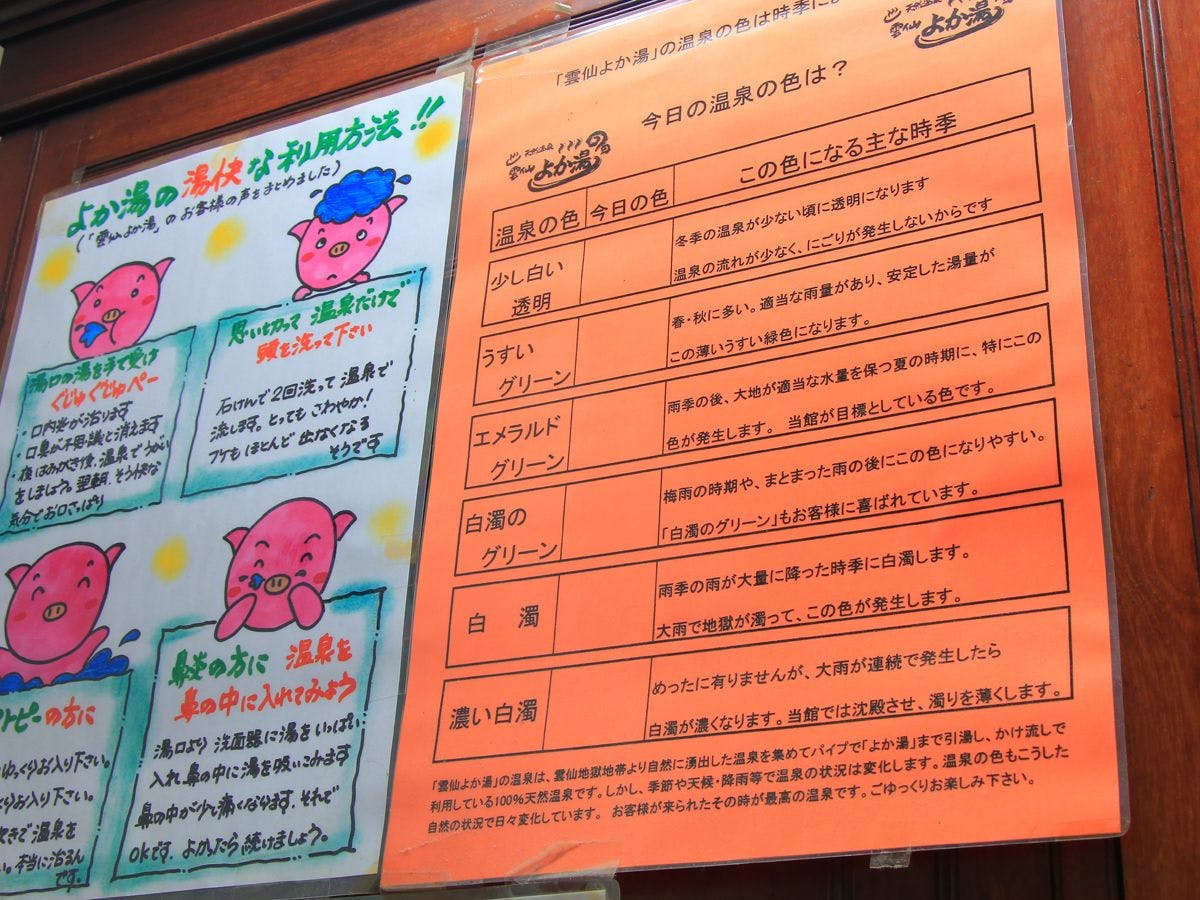 よか湯の湯快な利用方法!!
(「雲仙よか湯」のお客様の声をまとめました)
湯口の湯を手で受け
ぐじゅぐじゅペー
・口内炎が治ります
・口臭が不思議と消えます
・夜はみがき後、温泉でうがい
をしましょう。翌朝、そう快な
気分でお口さっぱり
思い切って 温泉だけで
頭を洗って下さい
石けんで2回洗って温泉で
流します。とってもさわやか!
フケもほとんど出なくなる
そうです
トピーの方に
ゆっくりお入り下さい。
くりお入り下さい。
きで温泉を
い。本当に治るん
です。
鼻炎の方に 温泉を
鼻の中に入れてみよう
湯口より洗面器に湯をいっぱい
入れ鼻の中に湯を吸いこみます
鼻の中が少し痛くなります。それで
OKです。よかったら続けましょう。
「雲仙よか湯」の温泉の色は時季に
天然温泉
雲仙 よか湯
今日の温泉の色は?
天然温泉
雲仙 よか湯
温泉の色 今日の色 この色になる主な時季
少し白い
透明
冬季の温泉が少ない頃に透明になります
温泉の流れが少なく、にごりが発生しないからです
うすい
グリーン
春・秋に多い。適当な雨量があり、安定した湯量が
この薄いうすい緑色になります。
エメラルド
グリーン
雨季の後、大地が適当な水量を保つ夏の時期に、特にこの
色が発生します。 当館が目標としている色です。
白濁の
グリーン
梅雨の時期や、まとまった雨の後にこの色になりやすい。
「白濁のグリーン」もお客様に喜ばれています。
白 濁
雨季の雨が大量に降った時季に白濁します。
大雨で地獄が濁って、この色が発生します。
濃い白濁
めったに有りませんが、大雨が連続で発生したら
白濁が濃くなります。当館では沈殿させ、濁りを薄くします。
「雲仙よか湯」の温泉は、雲仙地獄地帯より自然に湧出した温泉を集めてパイプで「よか湯」まで引湯し、かけ流しで
利用している100%天然温泉です。しかし、季節や天候・降雨等で温泉の状況は変化します。温泉の色もこうした
自然の状況で日々変化しています。 お客様が来られたその時が最高の温泉です。ごゆっくりお楽しみ下さい。